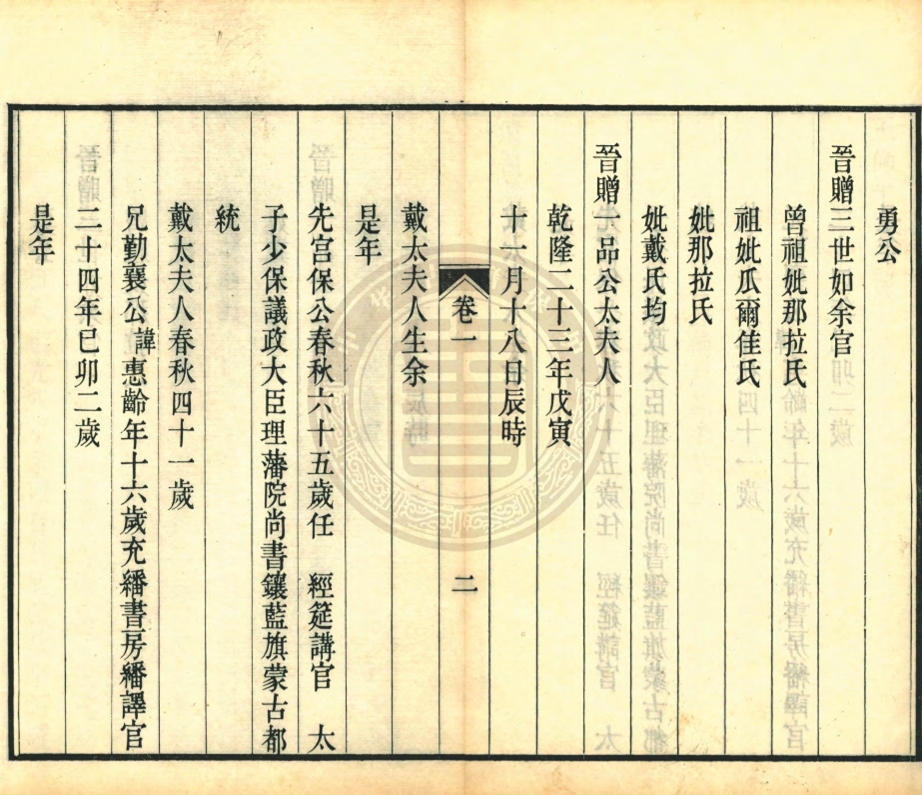 勇公
晉贈三世如余官
曾祖妣那拉氏
祖妣瓜爾佳氏
妣那拉氏
妣戴氏均
晉贈一品公太夫人
乾隆二十三年戊寅
十一月十八日辰時
卷一 二
戴太夫人生余
是年
先宮保公春秋六十五歲任 經筵講官 太
子少保議政大臣理藩院尚書鑲藍旗蒙古都
統
戴太夫人春秋四十一歲
兄勤襄公諱惠齡年十六歲充繙書房繙譯官
二十四年己卯二歲
是年